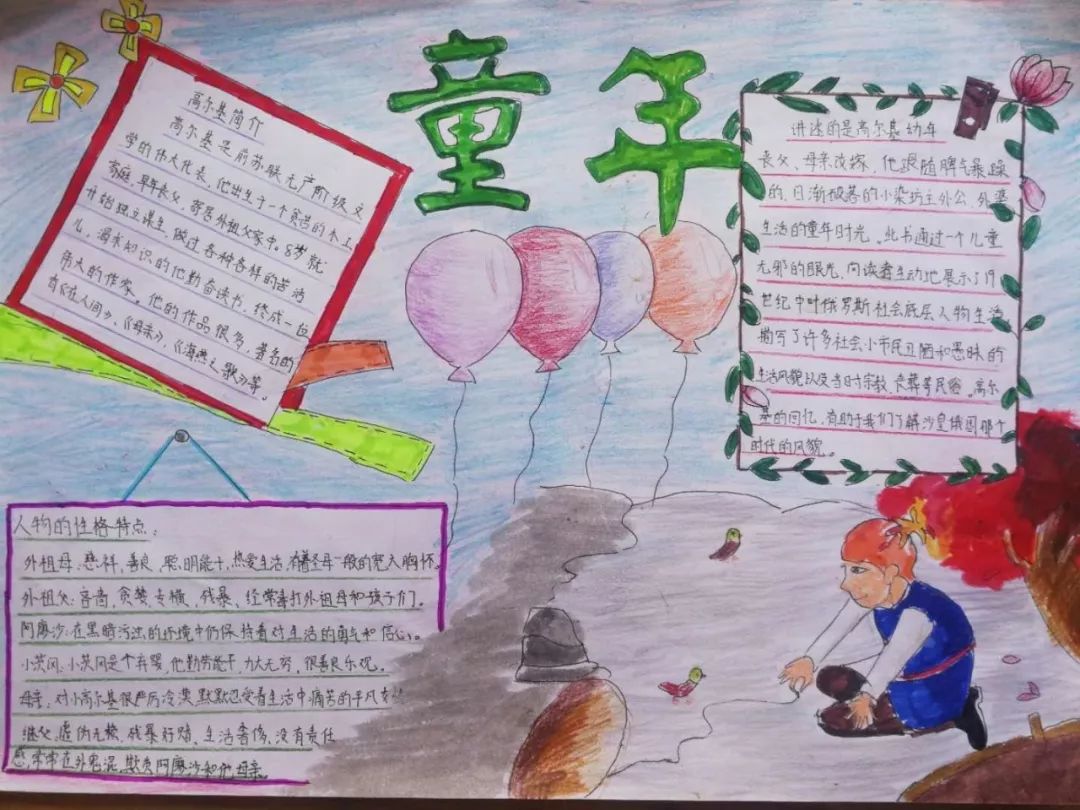 童年
高尔基简介
高尔基是前苏联无产阶级文
学的伟大代表，他出生于一个贫苦的木工
家庭，早年丧父，寄居外祖父家中。8岁就
开始独立谋生，做过各种各样的苦活
儿，渴求知识的他勤奋读书，终成一位
伟大的作家。他的作品很多，著名的
有《在人间》，《母亲》，《海燕之歌》等。
讲述的是高尔基幼年
丧父、母亲改嫁，他跟随脾气暴躁
的，日渐破落的小染坊主外公、外婆
生活的童年时光。此书通过一个儿童
无邪的眼光，向读者生动地展示了19
世纪中叶俄罗斯社会底层人物生活
描写了许多社会小市民丑陋和愚昧的
生活风貌以及当时宗教，丧葬等民俗。高尔
基的回忆，有助于我们了解沙皇俄国那个
时代的风貌。
人物的性格特点：
外祖母：慈祥，善良，聪明能干，热爱生活，有着圣母一般的宽大胸怀。
外祖父：吝啬，贪婪，专横，残暴、经常毒打外祖母和孩子们。
阿廖沙：在黑暗污浊的环境中仍保持着对生活的勇气和信心。
小茨冈：小茨冈是个弃婴，他勤劳能干，力大无穷，很善良乐观。
母亲：对小高尔基很严厉冷漠，默默忍受着生活中痛苦的平凡女
继父：虚伪无赖，残暴好赌、生活奢侈，没有责任
感，常常在外鬼混，欺负阿廖沙和他母亲。